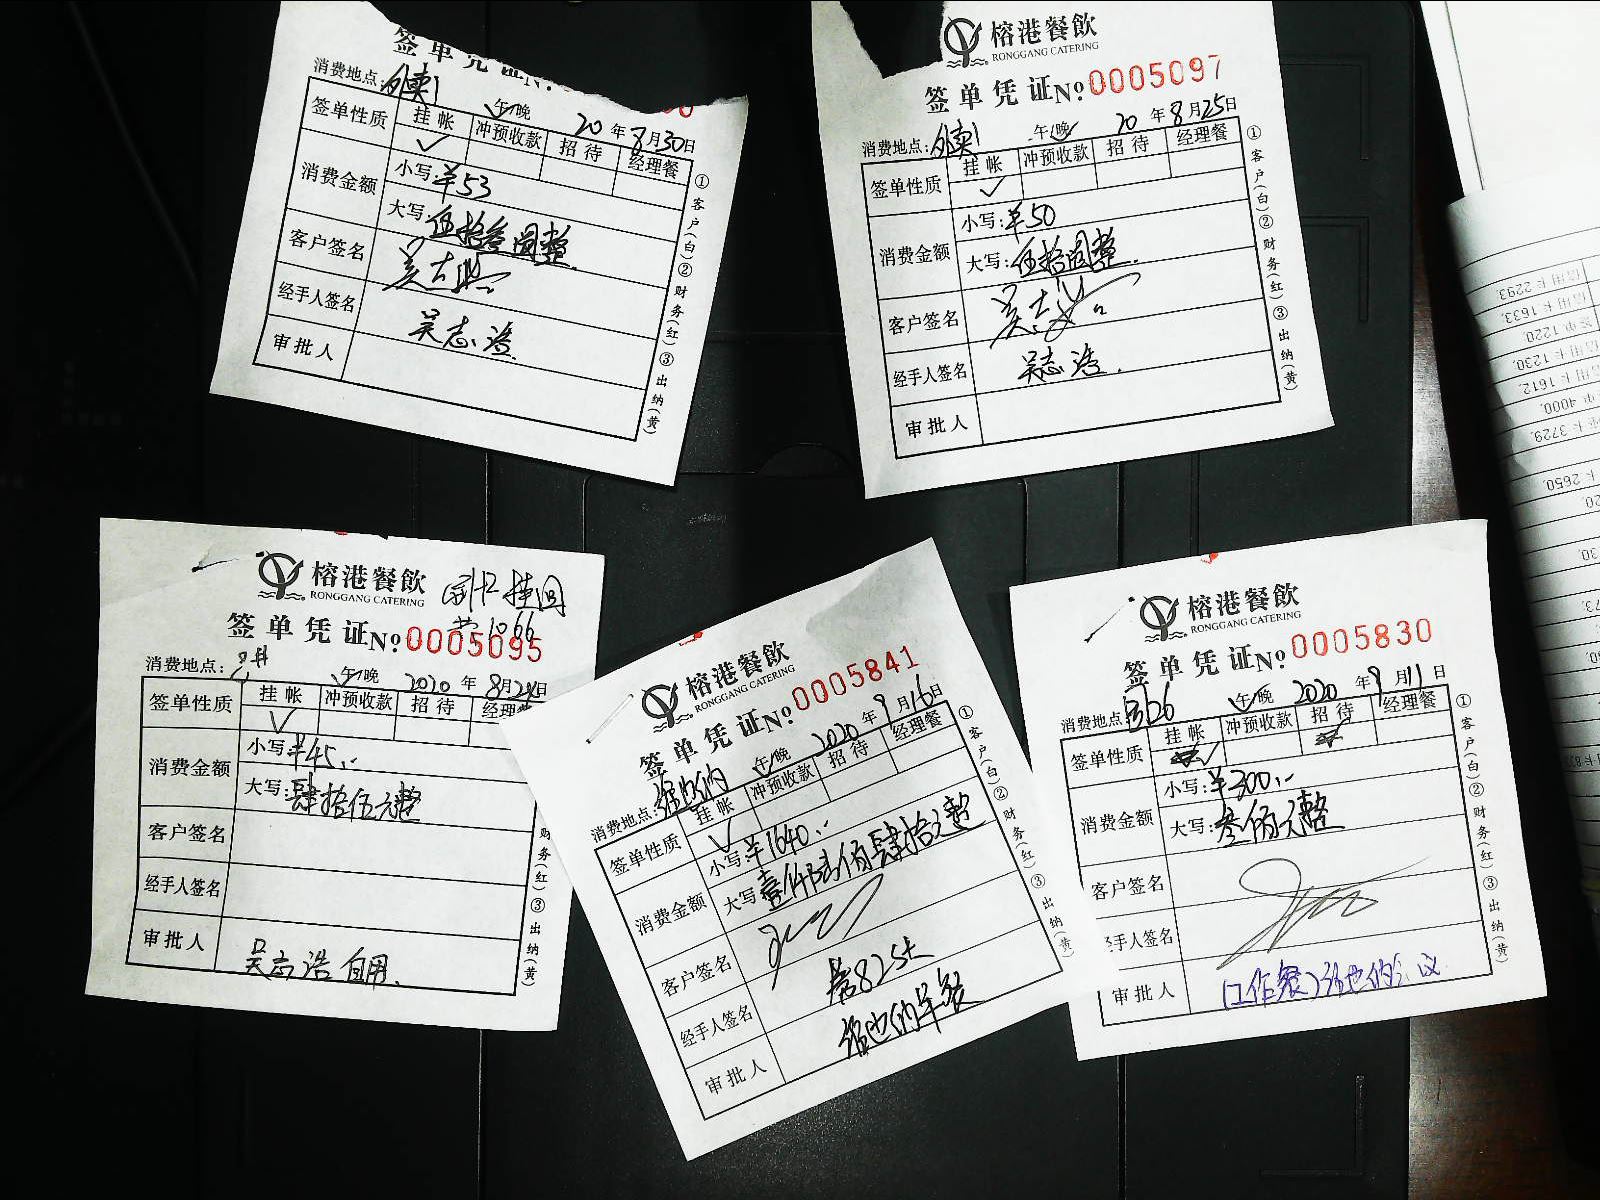 签单凭证No.
消费地点: 外卖 午/晚 20年8月30日
签单性质 挂帐 冲预收款 招待 经理餐
消费金额 小写:¥53
大写:伍拾叁圆整.
客户签名
经手人签名 吴志浩.
审批人
①客户(白)②财务(红)③出纳(黄)
榕港餐飲
RONGGANG CATERING
签单凭证No.0005097
消费地点: 外卖 午/晚 20年8月25日
签单性质 挂帐 冲预收款 招待 经理餐
消费金额 小写:¥50
大写:伍拾圆整.
客户签名
经手人签名 吴志浩.
审批人
①客户(白)②财务(红)③出纳(黄)
榕港餐飲
RONGGANG CATERING
1066
签单凭证No.0005095
消费地点: 午/晚 2020年8月2日
签单性质 挂帐 冲预收款 招待 经理
消费金额 小写:¥45.-
大写:肆拾伍元整
客户签名
经手人签名
审批人 吴志浩自用.
财务(红)③出纳(黄)
榕港餐飲
RONGGANG CATERING
签单凭证No.0005841
消费地点: 维也纳 午/晚 2020年9月16日
签单性质 挂帐 冲预收款 招待 经理餐
消费金额 小写:¥1640.-
大写:壹仟陆佰肆拾元整
客户签名
经手人签名
审批人 维也纳
①客户(白)②财务(红)③出纳(黄)
榕港餐飲
RONGGANG CATERING
签单凭证No.0005830
消费地点: 午/晚 2020年9月11日
签单性质 挂帐 冲预收款 招待 经理餐
消费金额 小写:¥300.-
大写:叁佰元整
客户签名
手人签名
审批人 (工作餐)
①客户(白)②财务(红)③出纳(黄)
信用卡2293.
信用卡1633.
1220.
信用卡1230.
信用卡1612.
4000.
卡3729.
卡2650.